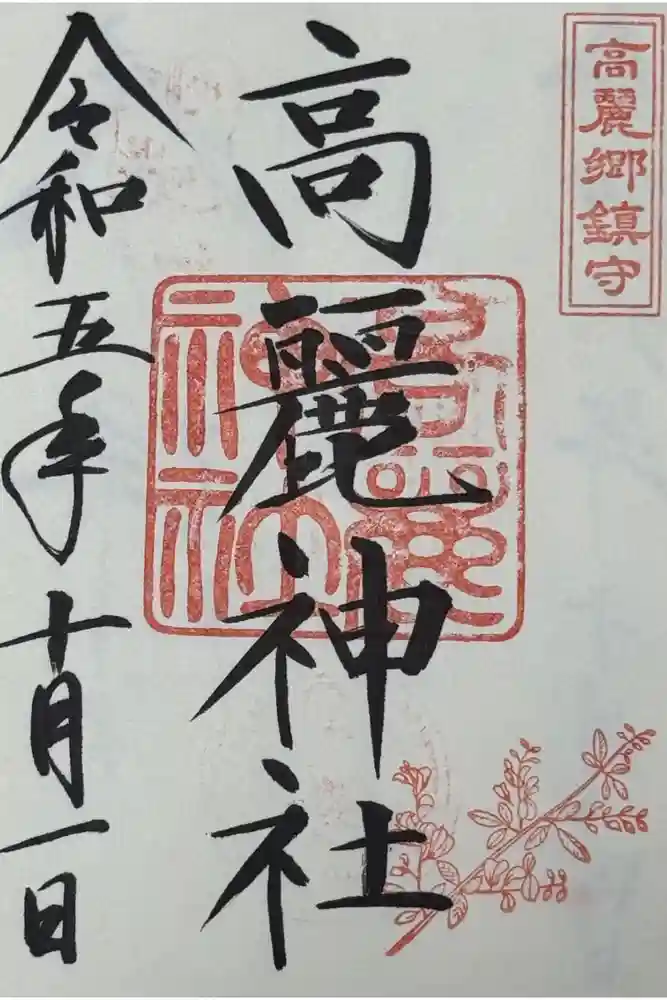 高麗郷鎮守
高麗神社
令和五年十月一日